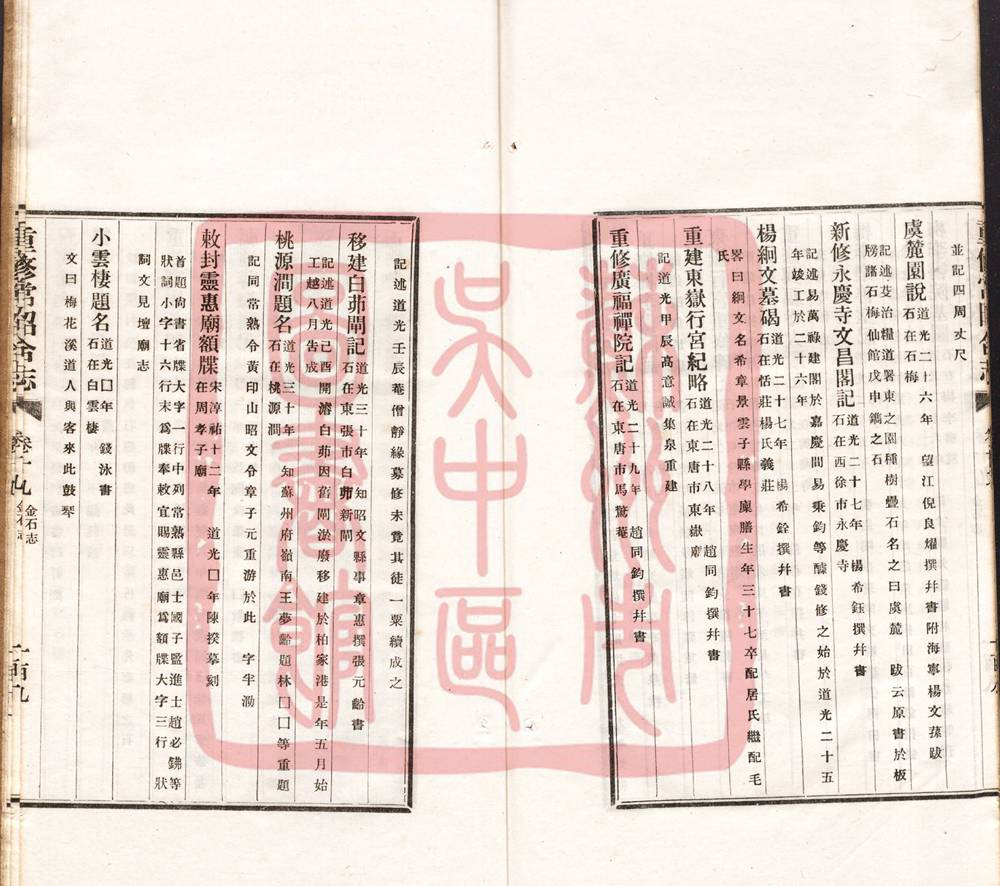 並記四周丈尺
虞麓園說道光二十六年 望江倪良燿撰幷書附海寧楊文蓀跋
石在石梅
記述芟治糧道署東之園種樹疊石名之曰虞麓 跋云原書於板
牓諸石梅仙館戊申鐫之石
新修永慶寺文昌閣記道光二十七年 楊希鈺撰幷書
石在西徐市永慶寺
記述易萬祿建閣於嘉慶間易秉鈞等醵錢修之始於道光二十五
年竣工於二十六年
楊絅文墓碣道光二十七年 楊希銓撰幷書
石在恬莊楊氏義莊
畧曰絅文名希章景雲子縣學廩膳生年三十七卒配居氏繼配毛
氏
重建東嶽行宮紀略道光二十八年 趙同鈞撰幷書
石在東唐市東嶽廟
記道光甲辰高意誠集泉重建
重修廣福禪院記道光二十九年 趙同鈞撰幷書
石在東唐市馬驚菴
記述道光壬辰菴僧靜緣募修未竟其徒一粟續成之
移建白茆閘記道光三十年 知昭文縣事章惠撰張元齡書
石在東張市白茆新閘
記述道光己酉開濬白茆因舊閘淤廢移建於柏家港是年五月始
工越八月告成
桃源澗題名道光三十年 知蘇州府嶺南王夢齡題林囗囗等重題
石在桃源澗
記同常熟令黃印山昭文令章子元重游於此 字半泐
敕封靈惠廟額牒宋淳祐十二年 道光囗年陳揆摹刻
在周孝子廟
首題尙書省牒大字一行中列常熟縣邑士國子監進士趙必鏽等
狀詞小字十六行末爲牒奉敕宜賜靈惠廟爲額牒大字三行 狀
詞文見壇廟志
小雲棲題名道光囗年 錢泳書
石在白雲棲
文曰梅花溪道人與客來此鼓琴
重修常昭合志
卷十九
金石志
一百九
蘇州市
吳中區
圖書館